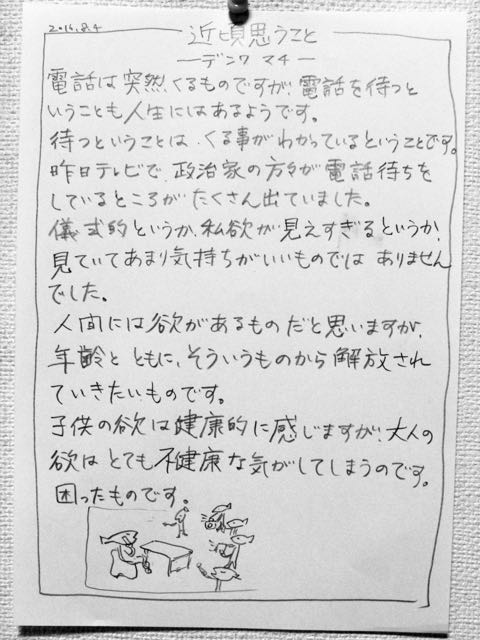 2016.8.4
近頃思うこと
―デンワ マチ―
電話は突然くるものですが、電話を待つと
いうことも人生にはあるようです。
待つということは、くる事がわかっているということです。
昨日テレビで、政治家の方々が電話待ちを
しているところがたくさん出ていました。
儀式的というか、私欲が見えすぎるというか、
見ていてあまり気持ちがいいものでは ありません
でした。
人間には欲があるものだと思いますが、
年齢と ともに、そういうものから解放され
ていきたいものです。
子供の欲は健康的に感じますが、大人の
欲は とても不健康な気がしてしまうのです。
困ったものです。